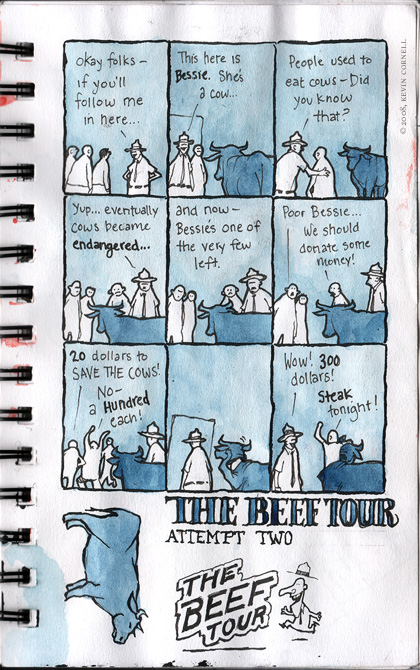 okay folks –
if you'll
follow me
in here...
This here is
Bessie. She's
a cow...
People used to
eat cows – Did
you know
that?
Yup... eventually
cows became
endangered...
and now –
Bessie's one of
the very few
left.
Poor Bessie...
We should
donate some
money!
20 dollars to
SAVE THE COWS!
No –
a Hundred
each!
Wow! 300
dollars!
Steak
tonight!
THE BEEF TOUR
ATTEMPT TWO
THE
BEEF
TOUR
© 2008, KEVIN CORNELL